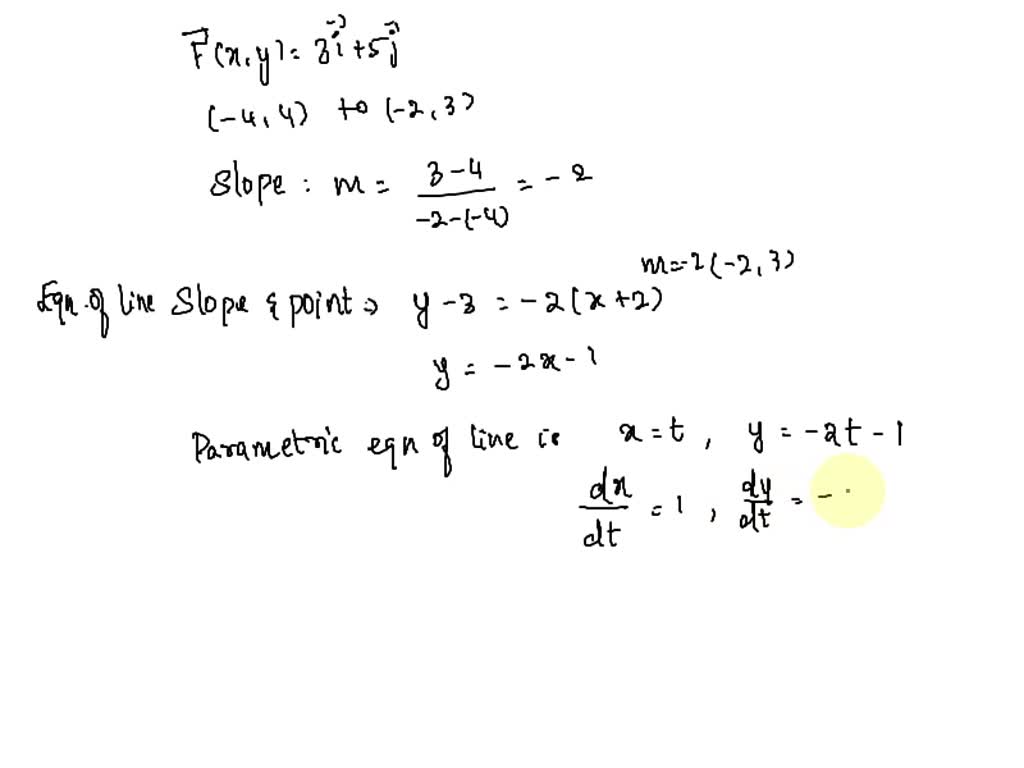 F⃗(x,y) = 3i⃗ + 5j⃗
(-4,4) to (-2,3)
Slope : m = 3-4 / -2-(-4) = -2
m=-2 (-2,3)
Eqn. of line Slope & point ⇒ y-3 = -2(x+2)
y = -2x-1
Parametric eqn of line is x=t, y = -2t-1
dx/dt = 1, dy/dt = -